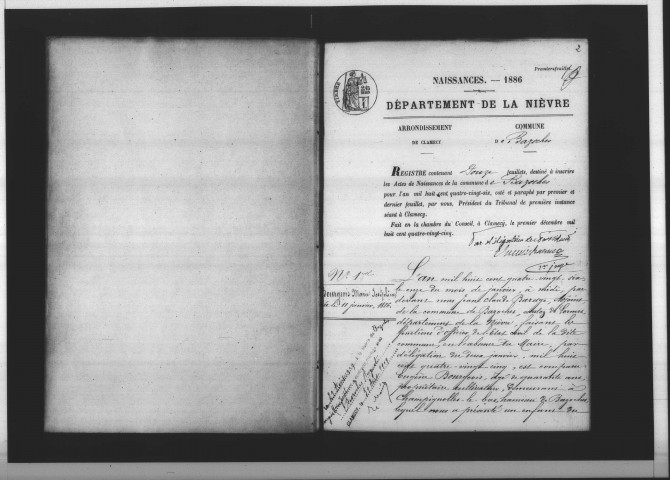 2
Premier feuillet
NAISSANCES. — 1886
DÉPARTEMENT DE LA NIÈVRE
ARRONDISSEMENT
DE CLAMECY
COMMUNE
de Bazoches
REGISTRE contenant Douze feuillets, destiné à inscrire
les Actes de Naissances de la commune de Bazoches
pour l'an mil huit cent quatre-vingt-six, coté et paraphé par premier et
dernier feuillet, par nous, Président du Tribunal de première instance
séant à Clamecy.
Fait en la chambre du Conseil, à Clamecy, le premier décembre mil
huit cent quatre-vingt-cinq.
N° 1er
Bourgeois Marie
11 janvier, 1886.
L'an mil huit cent quatre-vingt-six
le onze du mois de janvier, à midi, par
devant nous Jean Claude adjoint
de la commune de Bazoches, canton de Lormes
département de la Nièvre, faisant les
fonctions d'officier de l'état civil de la dite
commune, en l'absence du Maire, par
délégation du deux janvier, mil huit
cent quatre-vingt-cinq, est comparu
Eugène Bourgeois, âgé de quarante ans
propriétaire cultivateur, demeurant à
Champignolles le bas hameau de Bazoches
lequel nous a présenté un enfant du